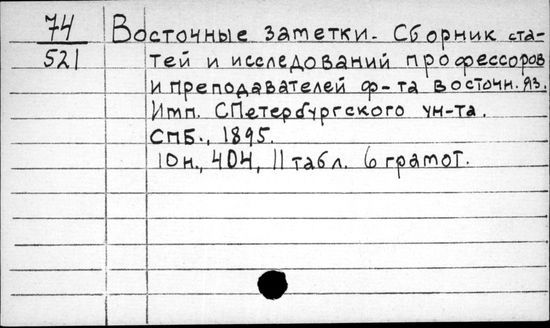 74 Восточные заметки. Сборник ста-
521 тей и исследований профессоров
и преподавателей ф-та восточн. яз.
Имп. СПетербургского ун-та.
СПБ., 1895.
10н., 404, 11 табл. 6 грамот.